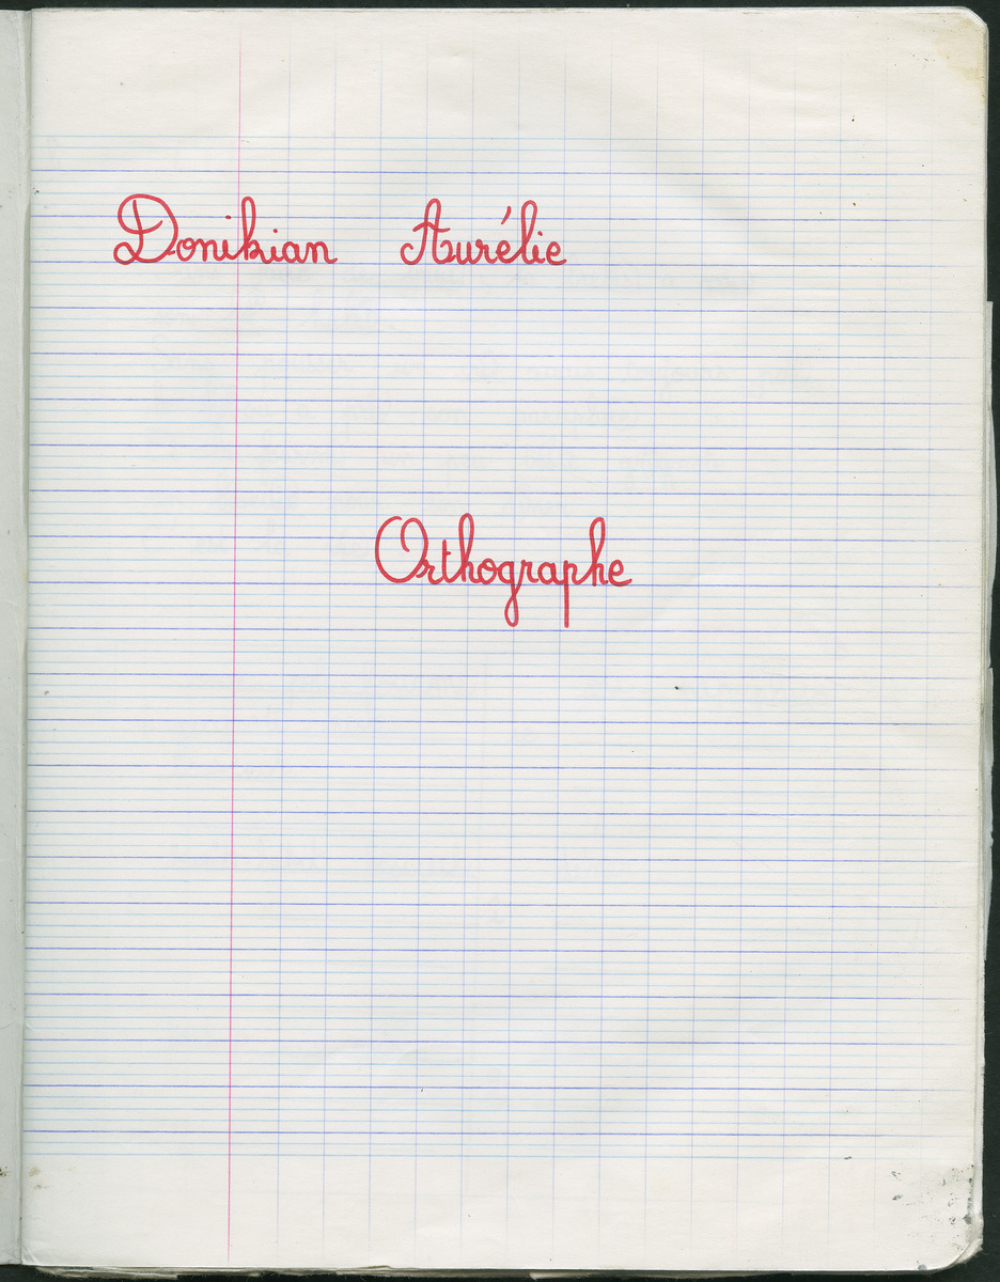 Donikian Aurélie
Orthographe